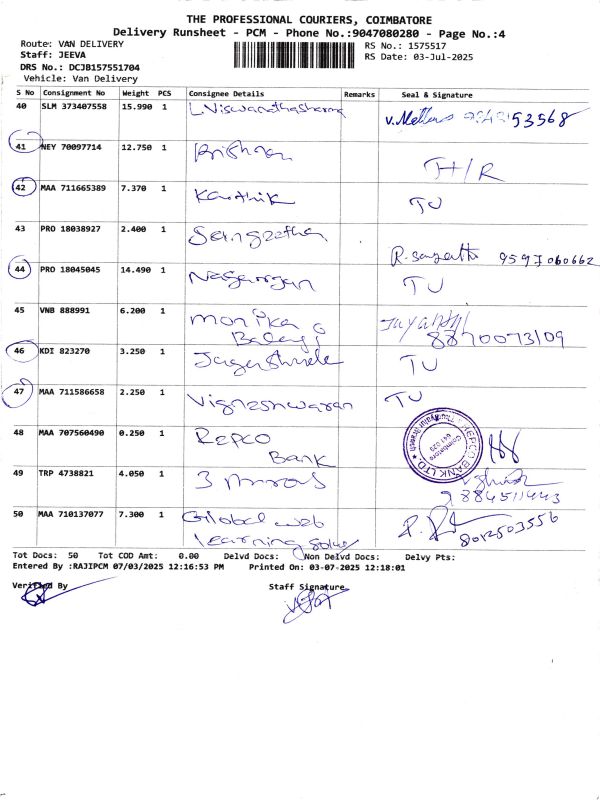 THE PROFESSIONAL COURIERS, COIMBATORE
Delivery Runsheet - PCM - Phone No.:9047080280 - Page No.:4
Route: VAN DELIVERY
Staff: JEEVA
DRS No.: DCJB157551704
Vehicle: Van Delivery
RS No.: 1575517
RS Date: 03-Jul-2025
S No Consignment No Weight PCS Consignee Details Remarks Seal & Signature
40 SLM 373407558 15.990 1 L. Viswanathasharma 
41 NEY 70097714 12.750 1 Krishnan H/R
42 MAA 711665389 7.370 1 Karthik TU
43 PRO 18038927 2.400 1 Sangeetha
44 PRO 18045045 14.490 1 Nagarajan TU
45 VNB 888991 6.200 1 Monika Balaji
46 KDI 823270 3.250 1 TU
47 MAA 711586658 2.250 1 Vigneshwaran TU
48 MAA 707560490 0.250 1 Repco Bank REPCO BANK LTD. Coimbatore
49 TRP 4738821 4.050 1 3
50 MAA 710137077 7.300 1 Global web learning 8012503556
Tot Docs: 50 Tot COD Amt: 0.00 Delvd Docs: Non Delvd Docs: Delvy Pts:
Entered By :RAJIPCM 07/03/2025 12:16:53 PM Printed On: 03-07-2025 12:18:01
Verified By Staff Signature